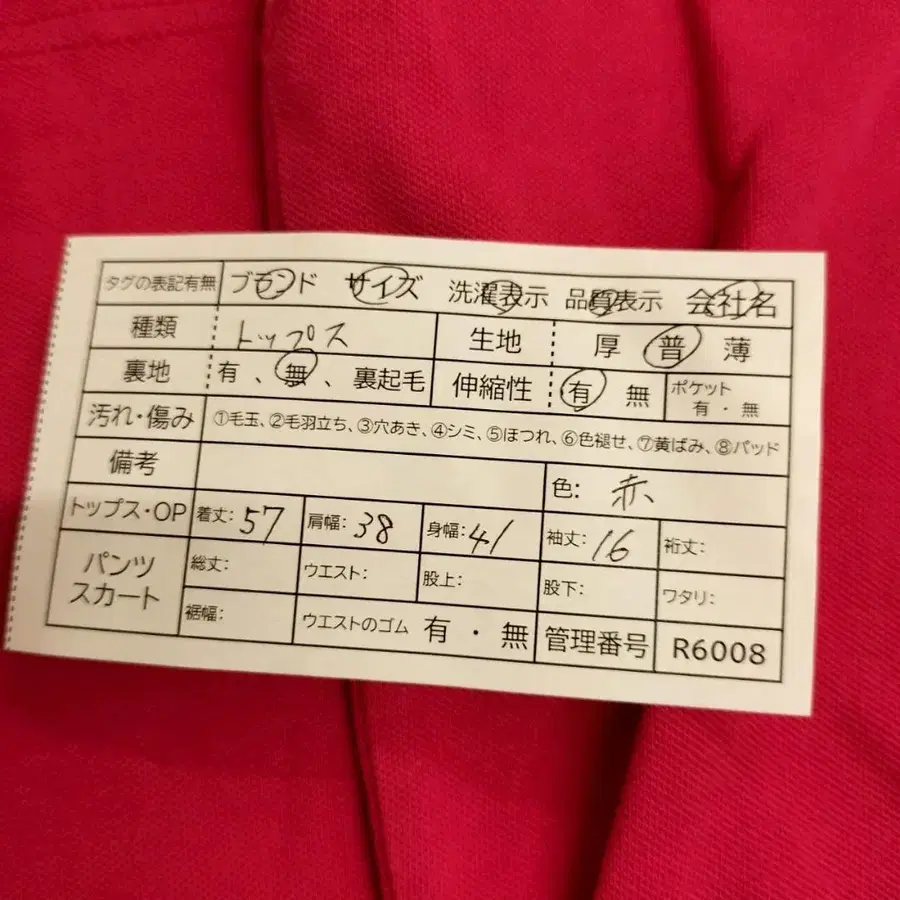 タグの表記有無 ブランド サイズ 洗濯表示 品質表示 会社名
種類 トップス 生地 厚 普 薄
裏地 有 、 無 、 裏起毛 伸縮性 有 無 ポケット 有 ・ 無
汚れ・傷み ①毛玉、②毛羽立ち、③穴あき、④シミ、⑤ほつれ、⑥色褪せ、⑦黄ばみ、⑧パッド
備考 色: 赤
トップス・OP 着丈: 57 肩幅: 38 身幅: 41 袖丈: 16 裄丈:
パンツ スカート 総丈: ウエスト: 股上: 股下: ワタリ:
裾幅: ウエストのゴム 有 ・ 無 管理番号 R6008